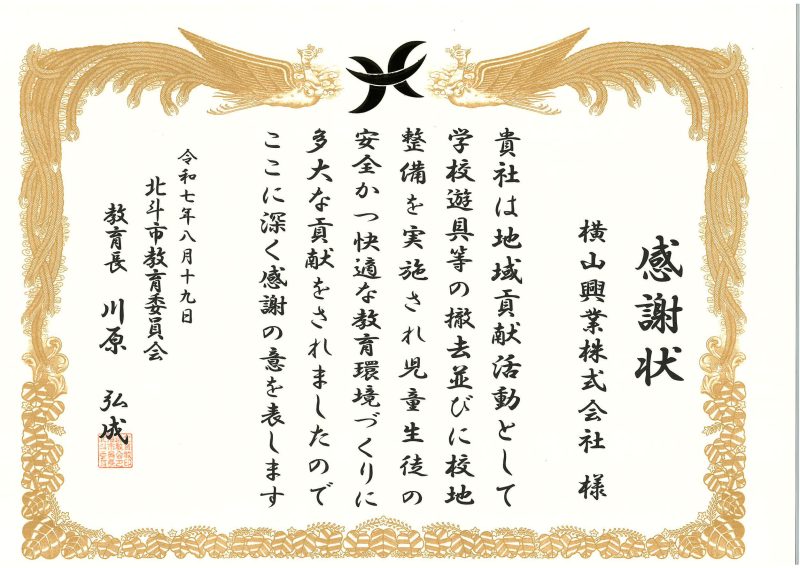 感謝状
横山興業株式会社 様
貴社は地域貢献活動として
学校遊具等の撤去並びに校地
整備を実施され児童生徒の
安全かつ快適な教育環境づくりに
多大な貢献をされましたので
ここに深く感謝の意を表します
令和七年八月十九日
北斗市教育委員会
教育長 川原 弘成